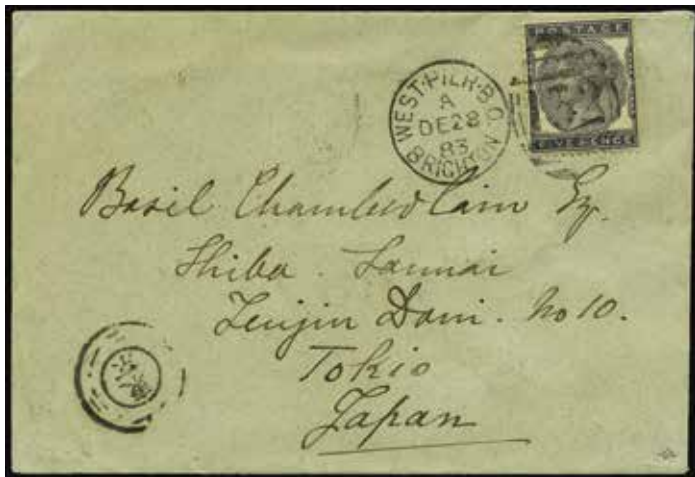 POSTAGE
FIVE PENCE
WEST·PIER·B.O.
A
DE 28
83
BRIGHTON
Basil Chamberlain Esq.
Shiba. Sannai
Tenjin Dani. No 10.
Tokio
Japan